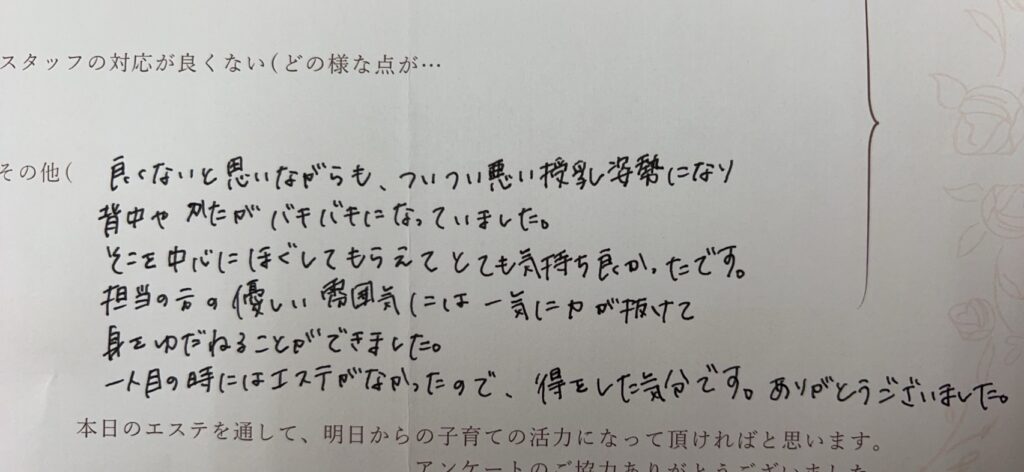 スタッフの対応が良くない(どの様な点が…
その他(
良くないと思いながらも、ついつい悪い授乳姿勢になり
背中や かたが バキバキになっていました。
そこを中心にほぐしてもらえて とても気持ち良かったです。
担当の方の優しい雰囲気には 一気に力が抜けて
身をゆだねることができました。
一人目の時にはエステがなかったので、得をした気分です。ありがとうございました。
本日のエステを通して、明日からの子育ての活力になって頂ければと思います。
アンケートのご協力ありがとうございました